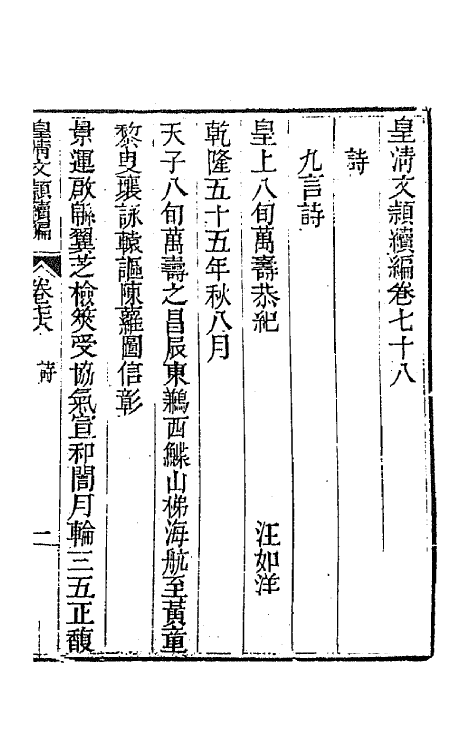 皇清文頴續編卷七十八
詩
九言詩
皇上八旬萬壽恭紀
汪如洋
乾隆五十五年秋八月
天子八旬萬壽之昌辰東鶼西鰈山梯海航至黃童
黎叟壤詠轅謳陳蘿圖信彰
景運啟緜翼芝檢筴受協氣宣和閏月輪三五正馥
皇淸文頴續編
卷七十八
詩
一